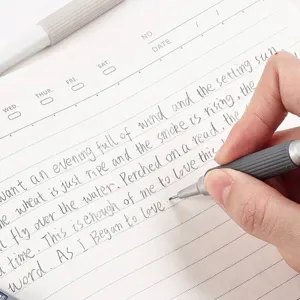 NO
DATE / /
WED THUR FRI SAT
want an evening full of wind and the setting sun
he wheat is just ripe and the smoke is rising, the
l fly over the water. Perched on a read, the
d time. This is enough of me to love this
word. As I Began to love